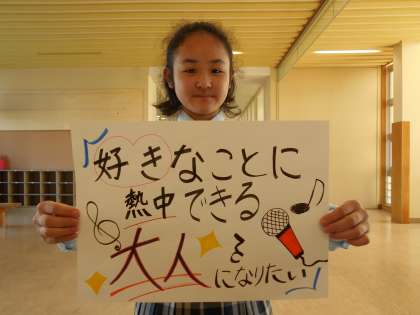 好きなことに
熱中できる
大人に
になりたい